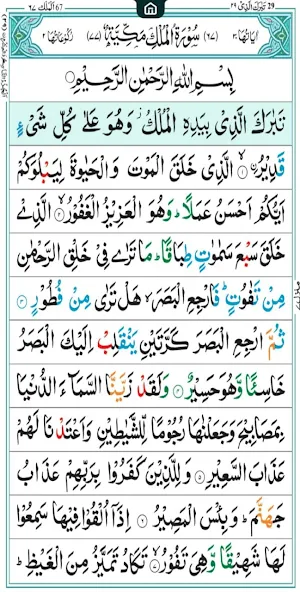 29 تَبٰرَكَ الَّذِیْ ٢٩
67 اَلْمُلْك ٦٧
اٰیَاتُهَا ٣٠ (٦٧) سُوْرَةُ الْمُلْكِ مَكِّیَّةٌ (٧٧) رُكُوْعَاتُهَا ٢
بِسْمِ اللّٰهِ الرَّحْمٰنِ الرَّحِیْمِ
تَبٰرَكَ الَّذِیْ بِیَدِهِ الْمُلْكُ ز وَهُوَ عَلٰی كُلِّ شَیْءٍ
قَدِیْرُ ۨ ۙ‏ ۝١ الَّذِیْ خَلَقَ الْمَوْتَ وَالْحَیٰوةَ لِیَبْلُوَكُمْ
اَیُّكُمْ اَحْسَنُ عَمَلًا ؕ وَهُوَ الْعَزِیْزُ الْغَفُوْرُ ۙ ۝٢ الَّذِیْ
خَلَقَ سَبْعَ سَمٰوٰتٍ طِبَاقًا ؕ مَا تَرٰی فِیْ خَلْقِ الرَّحْمٰنِ
مِنْ تَفٰوُتٍ ؕ فَارْجِعِ الْبَصَرَ ۙ هَلْ تَرٰی مِنْ فُطُوْرٍ ۝٣
ثُمَّ ارْجِعِ الْبَصَرَ كَرَّتَیْنِ یَنْقَلِبْ اِلَیْكَ الْبَصَرُ
خَاسِئًا وَّهُوَ حَسِیْرٌ ۝٤ وَلَقَدْ زَیَّنَّا السَّمَآءَ الدُّنْیَا
بِمَصَابِیْحَ وَجَعَلْنٰهَا رُجُوْمًا لِّلشَّیٰطِیْنِ وَاَعْتَدْنَا لَهُمْ
عَذَابَ السَّعِیْرِ ۝٥ وَلِلَّذِیْنَ كَفَرُوْا بِرَبِّهِمْ عَذَابُ
جَهَنَّمَ ؕ وَبِئْسَ الْمَصِیْرُ ۝٦ اِذَاۤ اُلْقُوْا فِیْهَا سَمِعُوْا
لَهَا شَهِیْقًا وَّهِیَ تَفُوْرُ ۙ ۝٧ تَكَادُ تَمَیَّزُ مِنَ الْغَیْظِ ؕ